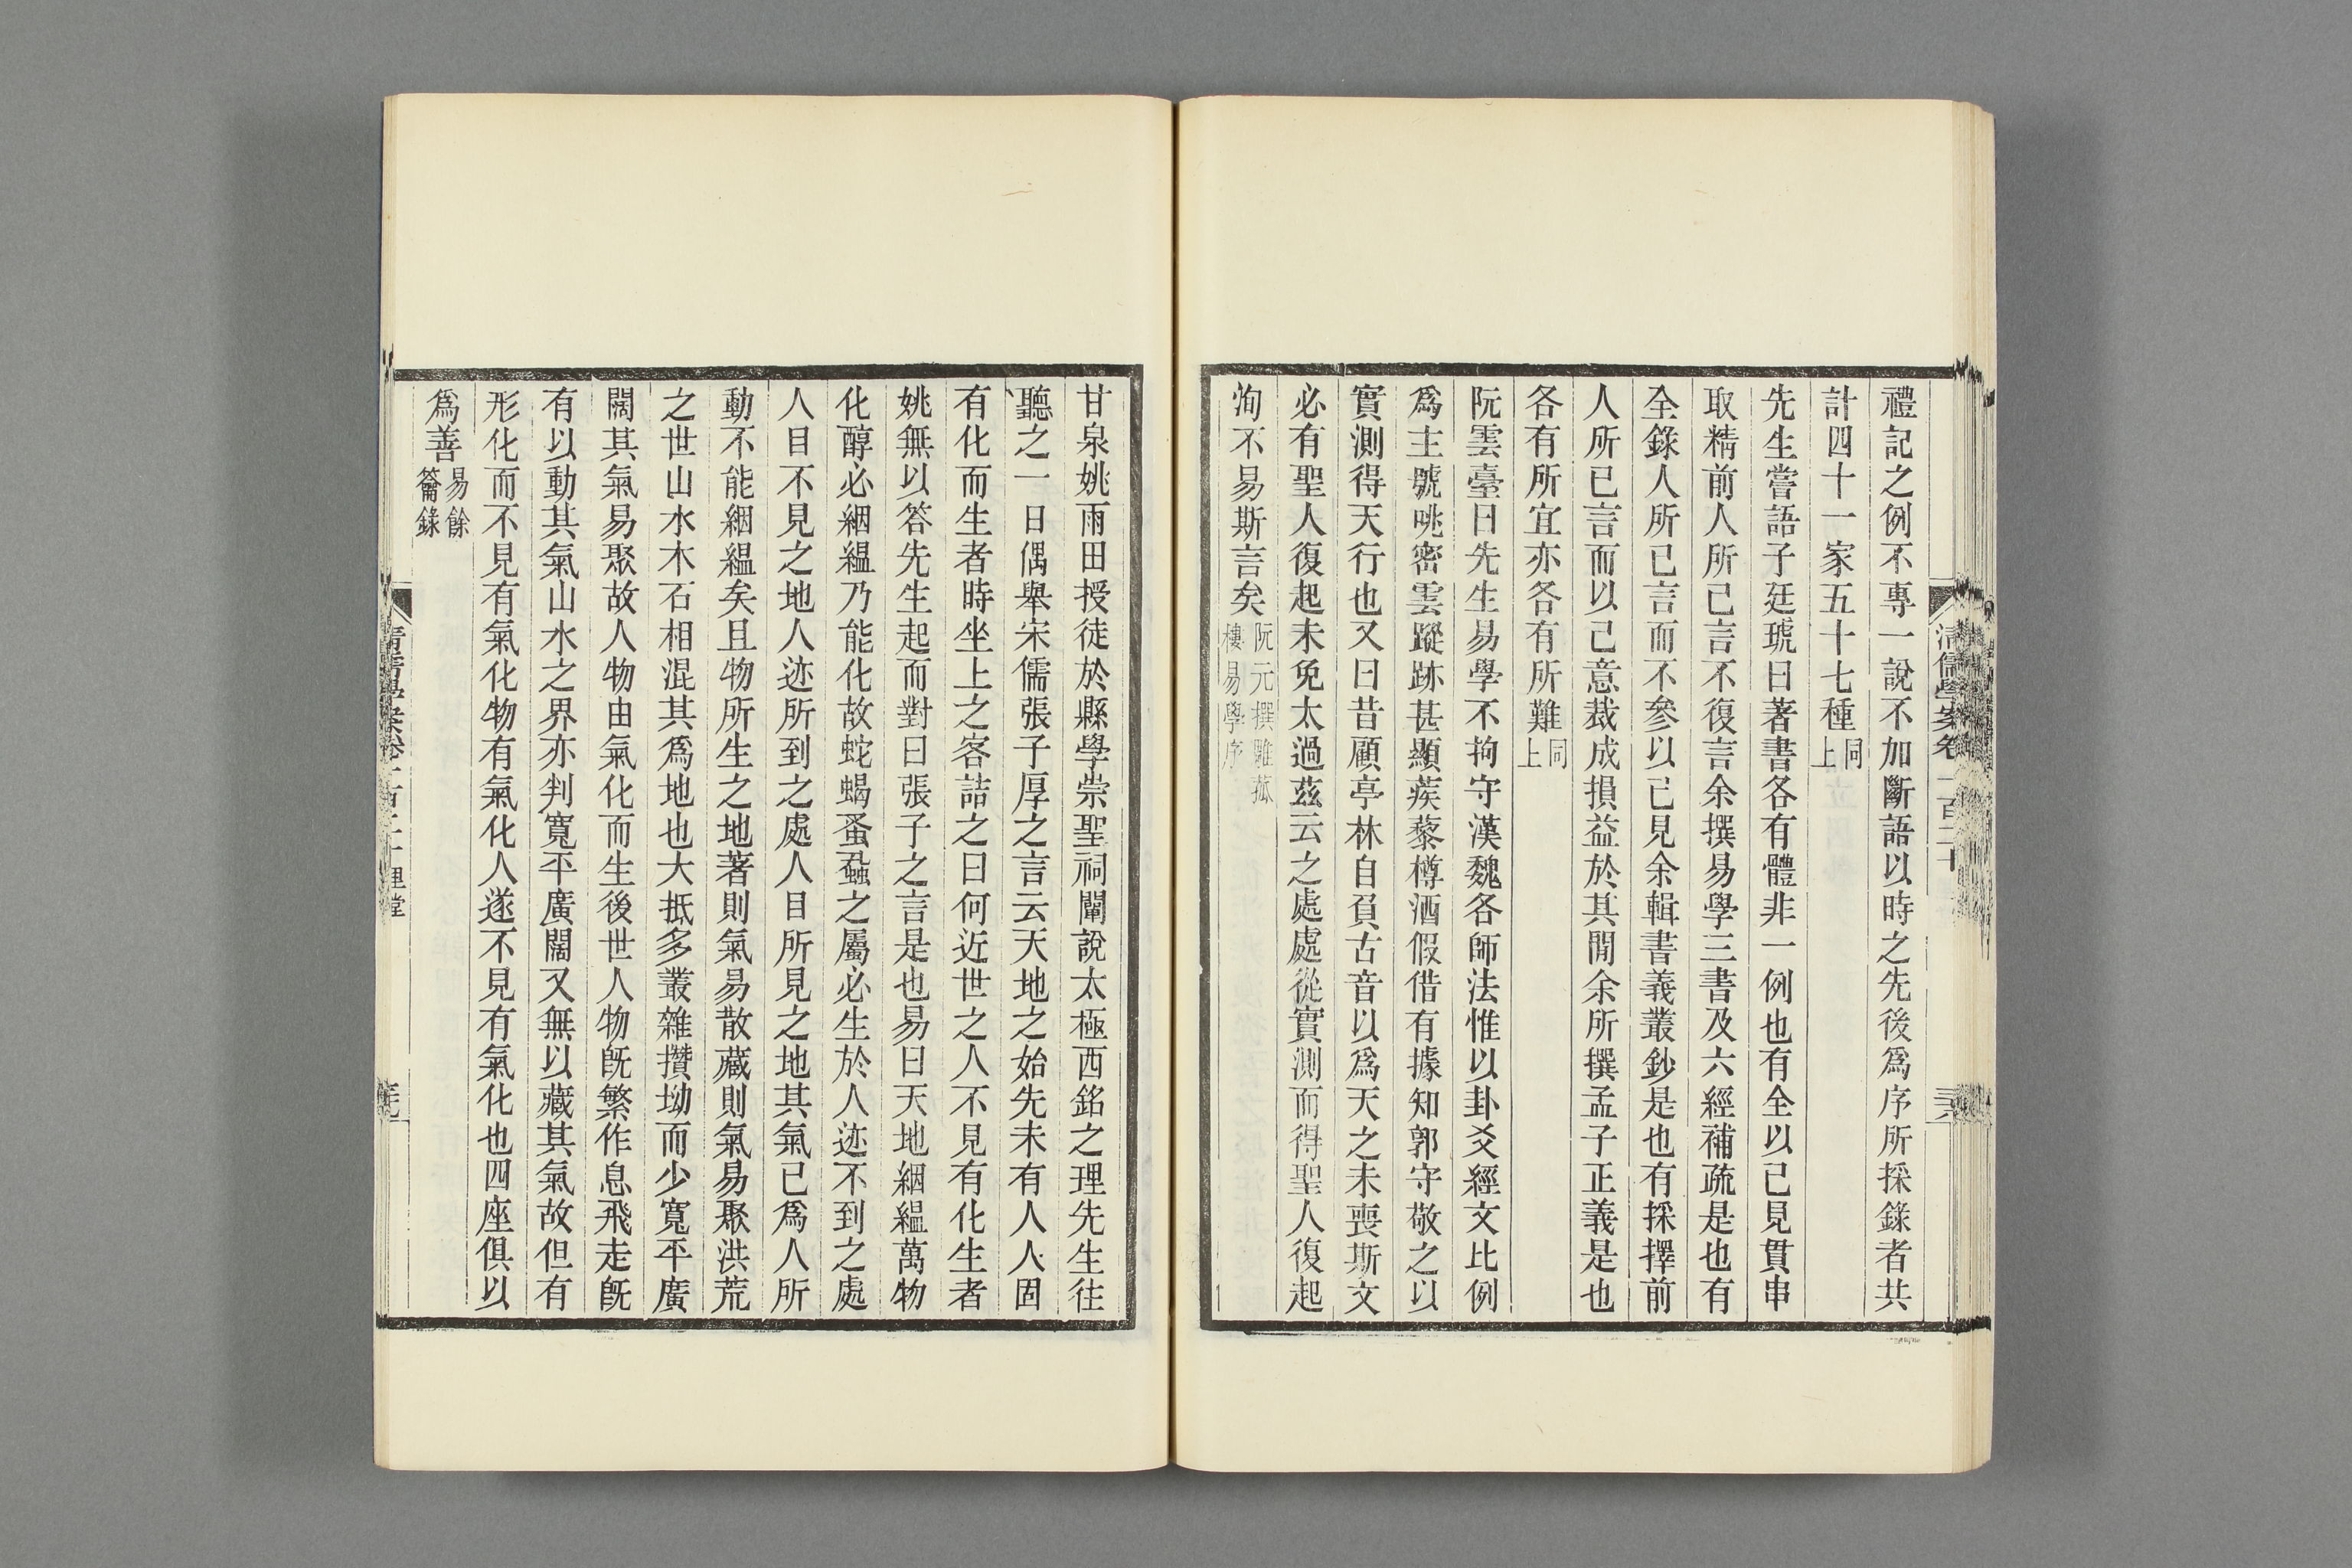 禮記之例不專一說不加斷語以時之先後爲序所採錄者共
計四十一家五十七種同上
先生嘗語子廷琥曰著書各有體非一例也有全以己見貫串
取精前人所已言不復言余撰易學三書及六經補疏是也有
全錄人所已言而不參以己見余輯書義叢鈔是也有採擇前
人所已言而以己意裁成損益於其閒余所撰孟子正義是也
各有所宜亦各有所難同上
阮雲臺曰先生易學不拘守漢魏各師法惟以卦爻經文比例
爲主號咷密雲蹤跡甚顯蒺藜樽酒假借有據知郭守敬之以
實測得天行也又曰昔顧亭林自負古音以爲天之未喪斯文
必有聖人復起未免太過茲云之處處從實測而得聖人復起
洵不易斯言矣阮元撰雕菰樓易學序
清儒學案卷一百二十
甘泉姚雨田授徒於縣學崇聖祠闡說太極西銘之理先生往
聽之一日偶舉宋儒張子厚之言云天地之始先未有人人固
有化而生者時坐上之客詰之曰何近世之人不見有化生者
姚無以答先生起而對曰張子之言是也易曰天地絪縕萬物
化醇必絪縕乃能化故蛇蝎蚤蝨之屬必生於人迹不到之處
人目不見之地人迹所到之處人目所見之地其氣已爲人所
動不能絪縕矣且物所生之地著則氣易散藏則氣易聚洪荒
之世山水木石相混其爲地也大抵多叢雜攢坳而少寬平廣
闊其氣易聚故人物由氣化而生後世人物旣繁作息飛走旣
有以動其氣山水之界亦判寬平廣闊又無以藏其氣故但有
形化而不見有氣化物有氣化人遂不見有氣化也四座俱以
爲善易餘籥錄
理堂